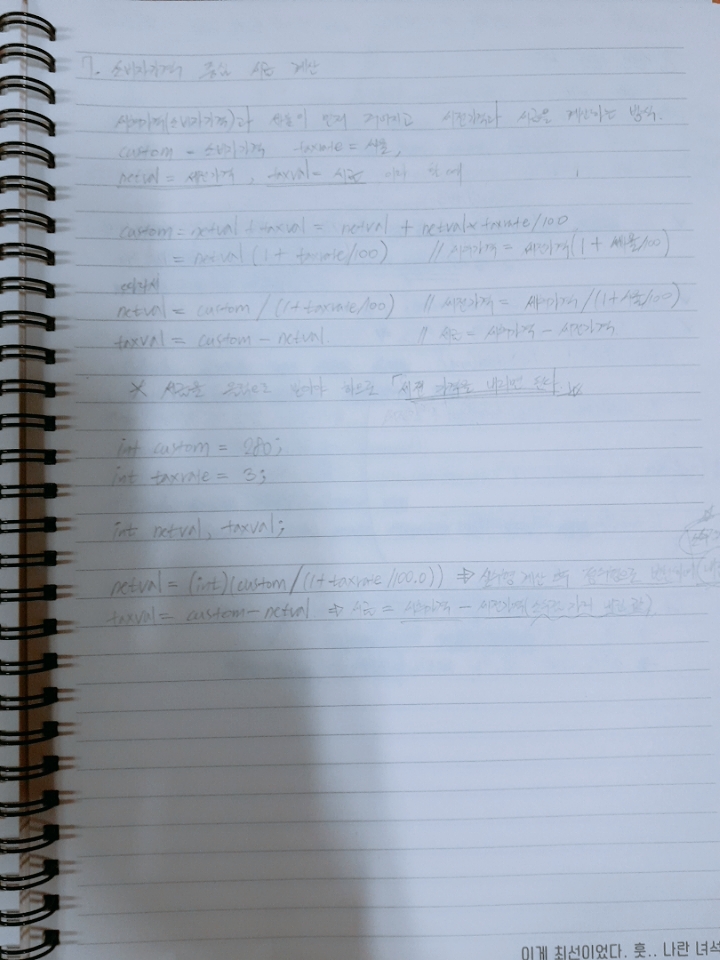 7. 소비자가격 중심 세금 계산
세후가격(소비자가격)과 세율이 먼저 정해지고 세전가격과 세금을 계산하는 방식.
custom = 소비자가격 taxrate = 세율,
netval = 세전가격, taxval = 세금 이라 할 때
custom = netval + taxval = netval + netval × taxrate/100
= netval (1 + taxrate/100) // 세후가격 = 세전가격(1 + 세율/100)
따라서
netval = custom / (1 + taxrate/100) // 세전가격 = 세후가격/(1+세율/100)
taxval = custom - netval. // 세금 = 세후가격 - 세전가격
* 세금을
int custom = 280;
int taxrate = 3;
int netval, taxval;
netval = (int)(custom/(1+taxrate/100.0)) ⇒ 실수형 계산 정수형으로
taxval = custom - netval ⇒ 세금 = 세후가격 - 세전가격
이게 최선이었다. 훗.. 나란 녀석